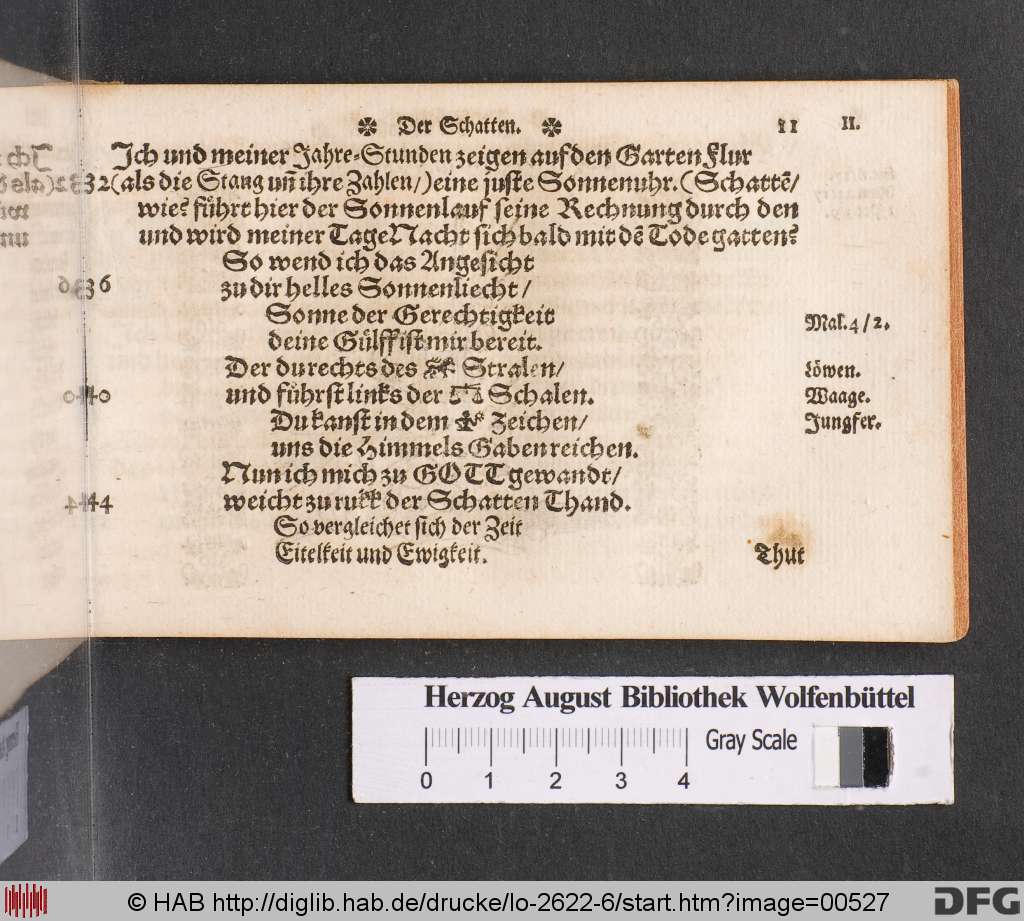 ✼ Der Schatten. ✼ 11 II.
Ich und meiner Jahre-Stunden zeigen auf den Garten Flur
32 (als die Stang uñ ihre Zahlen/) eine juste Sonnenuhr. (Schattẽ/
wie? führt hier der Sonnenlauf seine Rechnung durch den
und wird meiner Tage Nacht sich bald mit dẽ Tode gatten?
So wend ich das Angesicht
36 zu dir helles Sonnenliecht/
Sonne der Gerechtigkeit
Mal. 4/2.
deine Hülff ist mir bereit.
Der du rechts des ♌ Stralen/
Löwen.
40 und führst links der ♎ Schalen.
Waage.
Du kanst in dem ♍ Zeichen/
Jungfer.
uns die Himmels Gaben reichen.
Nun ich mich zu GOTT gewandt/
44 weicht zu rukk der Schatten Thand.
So vergleichet sich der Zeit
Eitelkeit und Ewigkeit.
Thut
Herzog August Bibliothek Wolfenbüttel
Gray Scale
0 1 2 3 4
© HAB http://diglib.hab.de/drucke/lo-2622-6/start.htm?image=00527
DFG